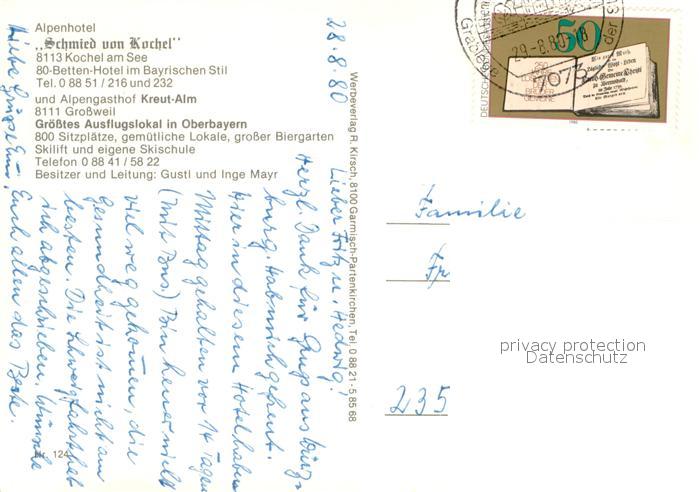 Alpenhotel
„Schmied von Kochel"
8113 Kochel am See
80-Betten-Hotel im Bayrischen Stil
Tel. 0 88 51 / 216 und 232
und Alpengasthof Kreut-Alm
8111 Großweil
Größtes Ausflugslokal in Oberbayern
800 Sitzplätze, gemütliche Lokale, großer Biergarten
Skilift und eigene Skischule
Telefon 0 88 41 / 58 22
Besitzer und Leitung: Gustl und Inge Mayr
Nr. 124
Werbeverlag R. Kirsch, 8100 Garmisch-Partenkirchen, Tel. 0 88 21 - 5 85 68
28.8.80
Lieber Fritz u. Hedwig!
Herzl. Dank für Gruß aus Würz-
burg. Hab mich gefreut.
Hier in diesem Hotel haben
Mittag gehalten vor 14 Tagen
(mit Bus.) Bin heuer nicht
viel weg gekommen, die
Gesundheit ist nicht am
besten. Die Schweizfahrt hab
ich abgeschrieben. Wünsche
Euch allen das Beste.
Liebe Grüße
Familie
Fr
235
50
29.-8.80-18
7073
DEUTSCHE
250
JAHRE
LOSUNGEN
DER
BRÜDER
GEMEINE
1980
privacy protection
Datenschutz